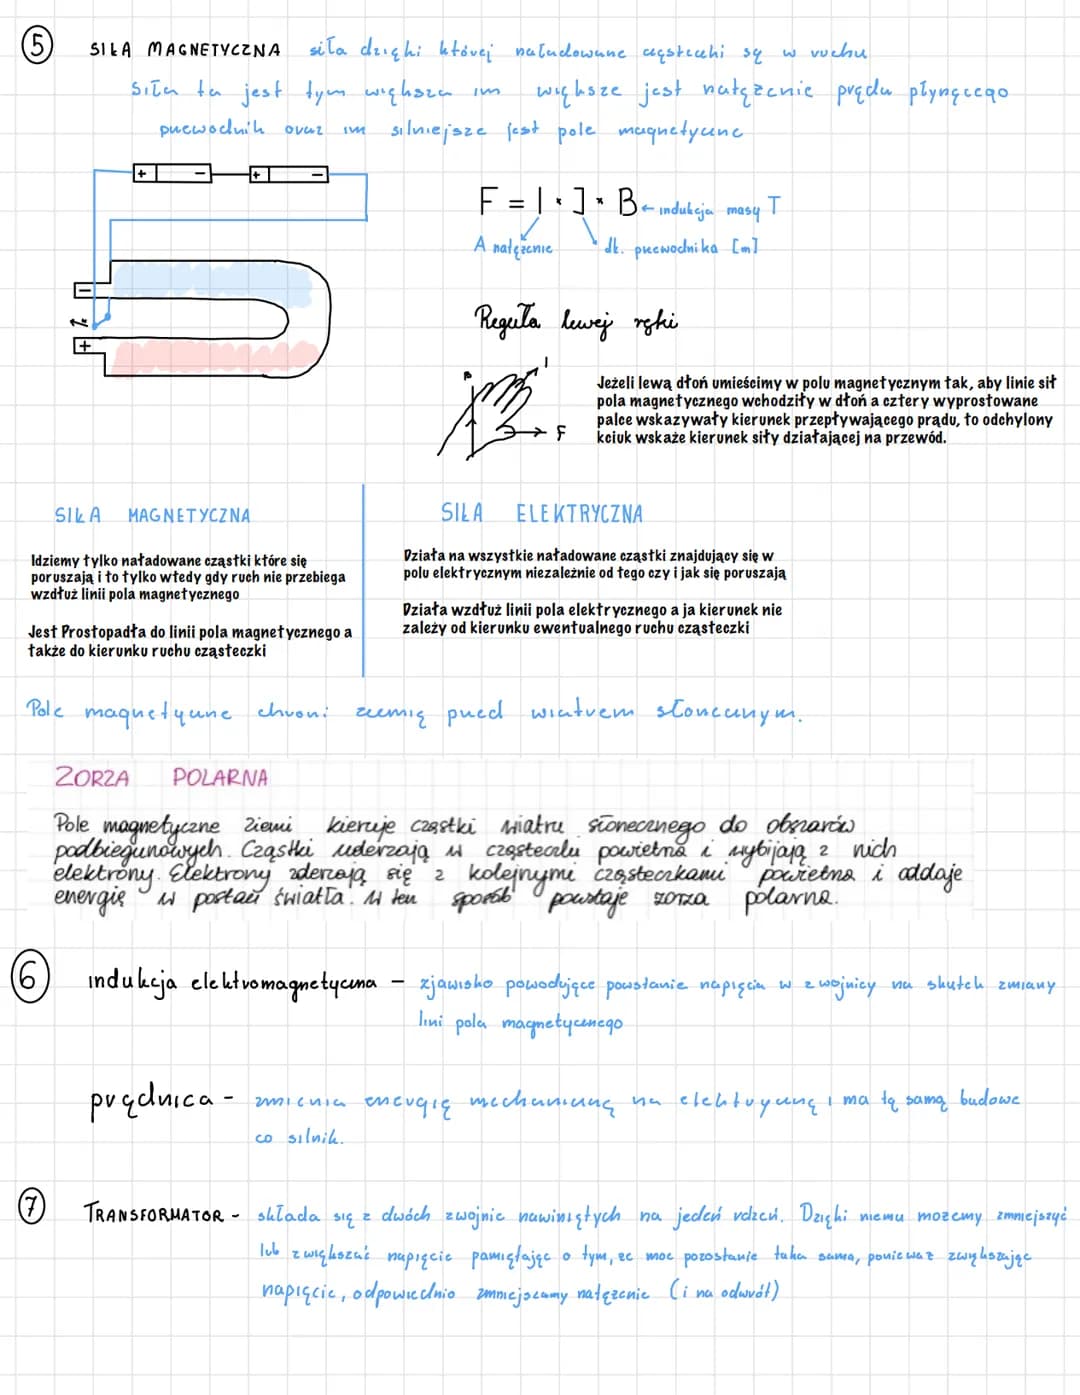 5 SIŁA MAGNETYCZNA siła dzięki której naładowane cząsteczki są w ruchu
Siła ta jest tym większa im większe jest natężenie prądu płynącego
przewodnik oraz im silniejsze jest pole magnetyczne
+ - + -
F = I * J * B ← indukcja masy T
A natężenie dł. przewodnika [m]
-
+
Reguła lewej ręki
B I F
Jeżeli lewą dłoń umieścimy w polu magnetycznym tak, aby linie sił
pola magnetycznego wchodziły w dłoń a cztery wyprostowane
palce wskazywały kierunek przepływającego prądu, to odchylony
kciuk wskaże kierunek siły działającej na przewód.
SIŁA MAGNETYCZNA
Idziemy tylko naładowane cząstki które się
poruszają i to tylko wtedy gdy ruch nie przebiega
wzdłuż linii pola magnetycznego
Jest Prostopadła do linii pola magnetycznego a
także do kierunku ruchu cząsteczki
SIŁA ELEKTRYCZNA
Działa na wszystkie naładowane cząstki znajdujący się w
polu elektrycznym niezależnie od tego czy i jak się poruszają
Działa wzdłuż linii pola elektrycznego a ja kierunek nie
zależy od kierunku ewentualnego ruchu cząsteczki
Pole magnetyczne chroni ziemię przed wiatrem słonecznym.
ZORZA POLARNA
Pole magnetyczne Ziemi kieruje cząstki wiatru słonecznego do obszarów
podbiegunowych. Cząstki uderzają w cząsteczki powietrza i wybijają z nich
elektrony. Elektrony zderzają się z kolejnymi cząsteczkami powietrza i oddaje
energię w postaci światła. W ten sposób powstaje zorza polarna.
6 indukcja elektromagnetyczna – zjawisko powodujące powstanie napięcia w zwojnicy na skutek zmiany
lini pola magnetycznego
prądnica - zmienia energię mechaniczną na elektryczną i ma tą samą budowe
co silnik.
7 TRANSFORMATOR - składa się z dwóch zwojnic nawiniętych na jeden rdzeń. Dzięki niemu możemy zmniejszyć
lub zwiększać napięcie pamiętając o tym, że moc pozostanie taka sama, ponieważ zwykszając
napięcie, odpowiednio zmniejszamy natężenie (i na odwrót)